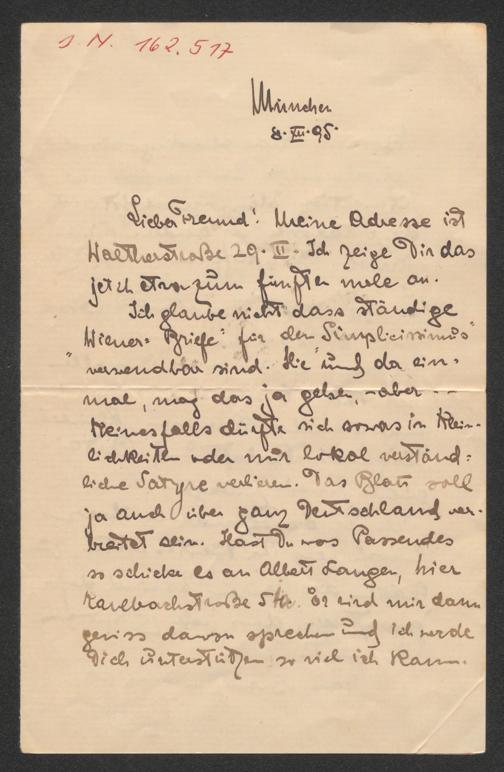 J. N. 162.517
München
8. XII. 95.
Lieber Freund! Meine Adresse ist
Waltherstraße 29. II. Ich zeige Dir das
jetzt etwa zum fünften male an.
Ich glaube nicht dass ständige
"Wiener-Briefe" für den "Simplicissimus"
verwendbar sind. Hie und da ein-
mal, mag das ja gehen, - aber - -
Keinesfalls dürfte sich sowas in Klein-
lichkeiten oder nur lokal verständ-
liche Satyre verlieren. Das Blatt soll
ja auch über ganz Deutschland ver-
breitet sein. Hast Du was Passendes
so schicke es an Albert Langen, hier
Kaulbachstraße Er wird mir dann
gewiss davon sprechen und ich werde
Dich unterstützen so viel ich kann.